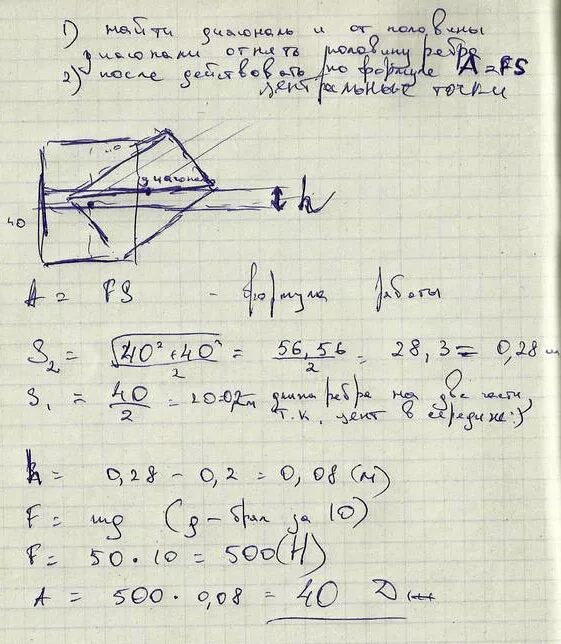 1) найти диагональ и от половины
диагонали отнять половину ребра
2) после действовать по формуле A = FS
центральные точки
диагональ
40
h
A = FS - формула работы
S₂ = √40² + 40² / 2 = 56,56 / 2 = 28,3 = 0,28 м
S₁ = 40 / 2 = 20=0,2м длина ребра на две части,
т.к. цент в середине:)
h = 0,28 - 0,2 = 0,08 (м)
F = mg (g - брал за 10)
F = 50 · 10 = 500 (Н)
A = 500 · 0,08 = 40 Дж